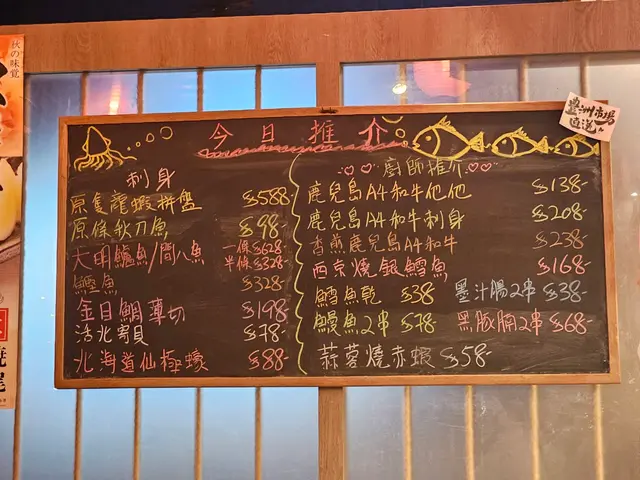 秋の味覚
豊洲市場
直送
今日推介
刺身
原隻龍蝦拼盤 $588-
原條秋刀魚 $98-
大明鱸魚/間八魚 一條$628- 半條$328-
鰹魚 $328-
金目鯛薄切 $198-
活北寄貝 $78-
北海道仙極蠔 $88-
廚師推介
鹿兒島A4和牛他他 $138-
鹿兒島A4和牛刺身 $208-
香煎鹿兒島A4和牛 $238-
西京燒銀鱈魚 $168-
鱈魚乾 $38- 墨汁腸2串 $38-
鰻魚2串 $78- 黑豚腩2串 $68-
蒜蓉燒赤蝦 $58-